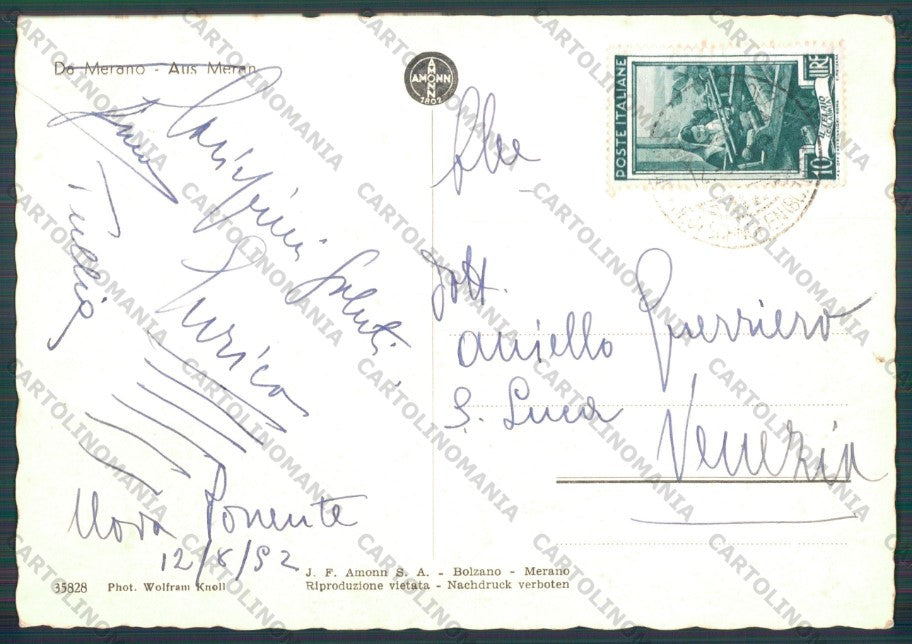 Da Merano - Aus Meran
AMONN
AMONN
1802
POSTE ITALIANE
LIRE
10
IL TELAIO
Carissimi Saluti
Enrico
Tullio
Nova Ponente
12/8/52
Dott.
Aniello Guerriero
S. Luca
Venezia
35828 Phot. Wolfram Knoll
J. F. Amonn S. A. - Bolzano - Merano
Riproduzione vietata - Nachdruck verboten
CARTOLINOMANIA